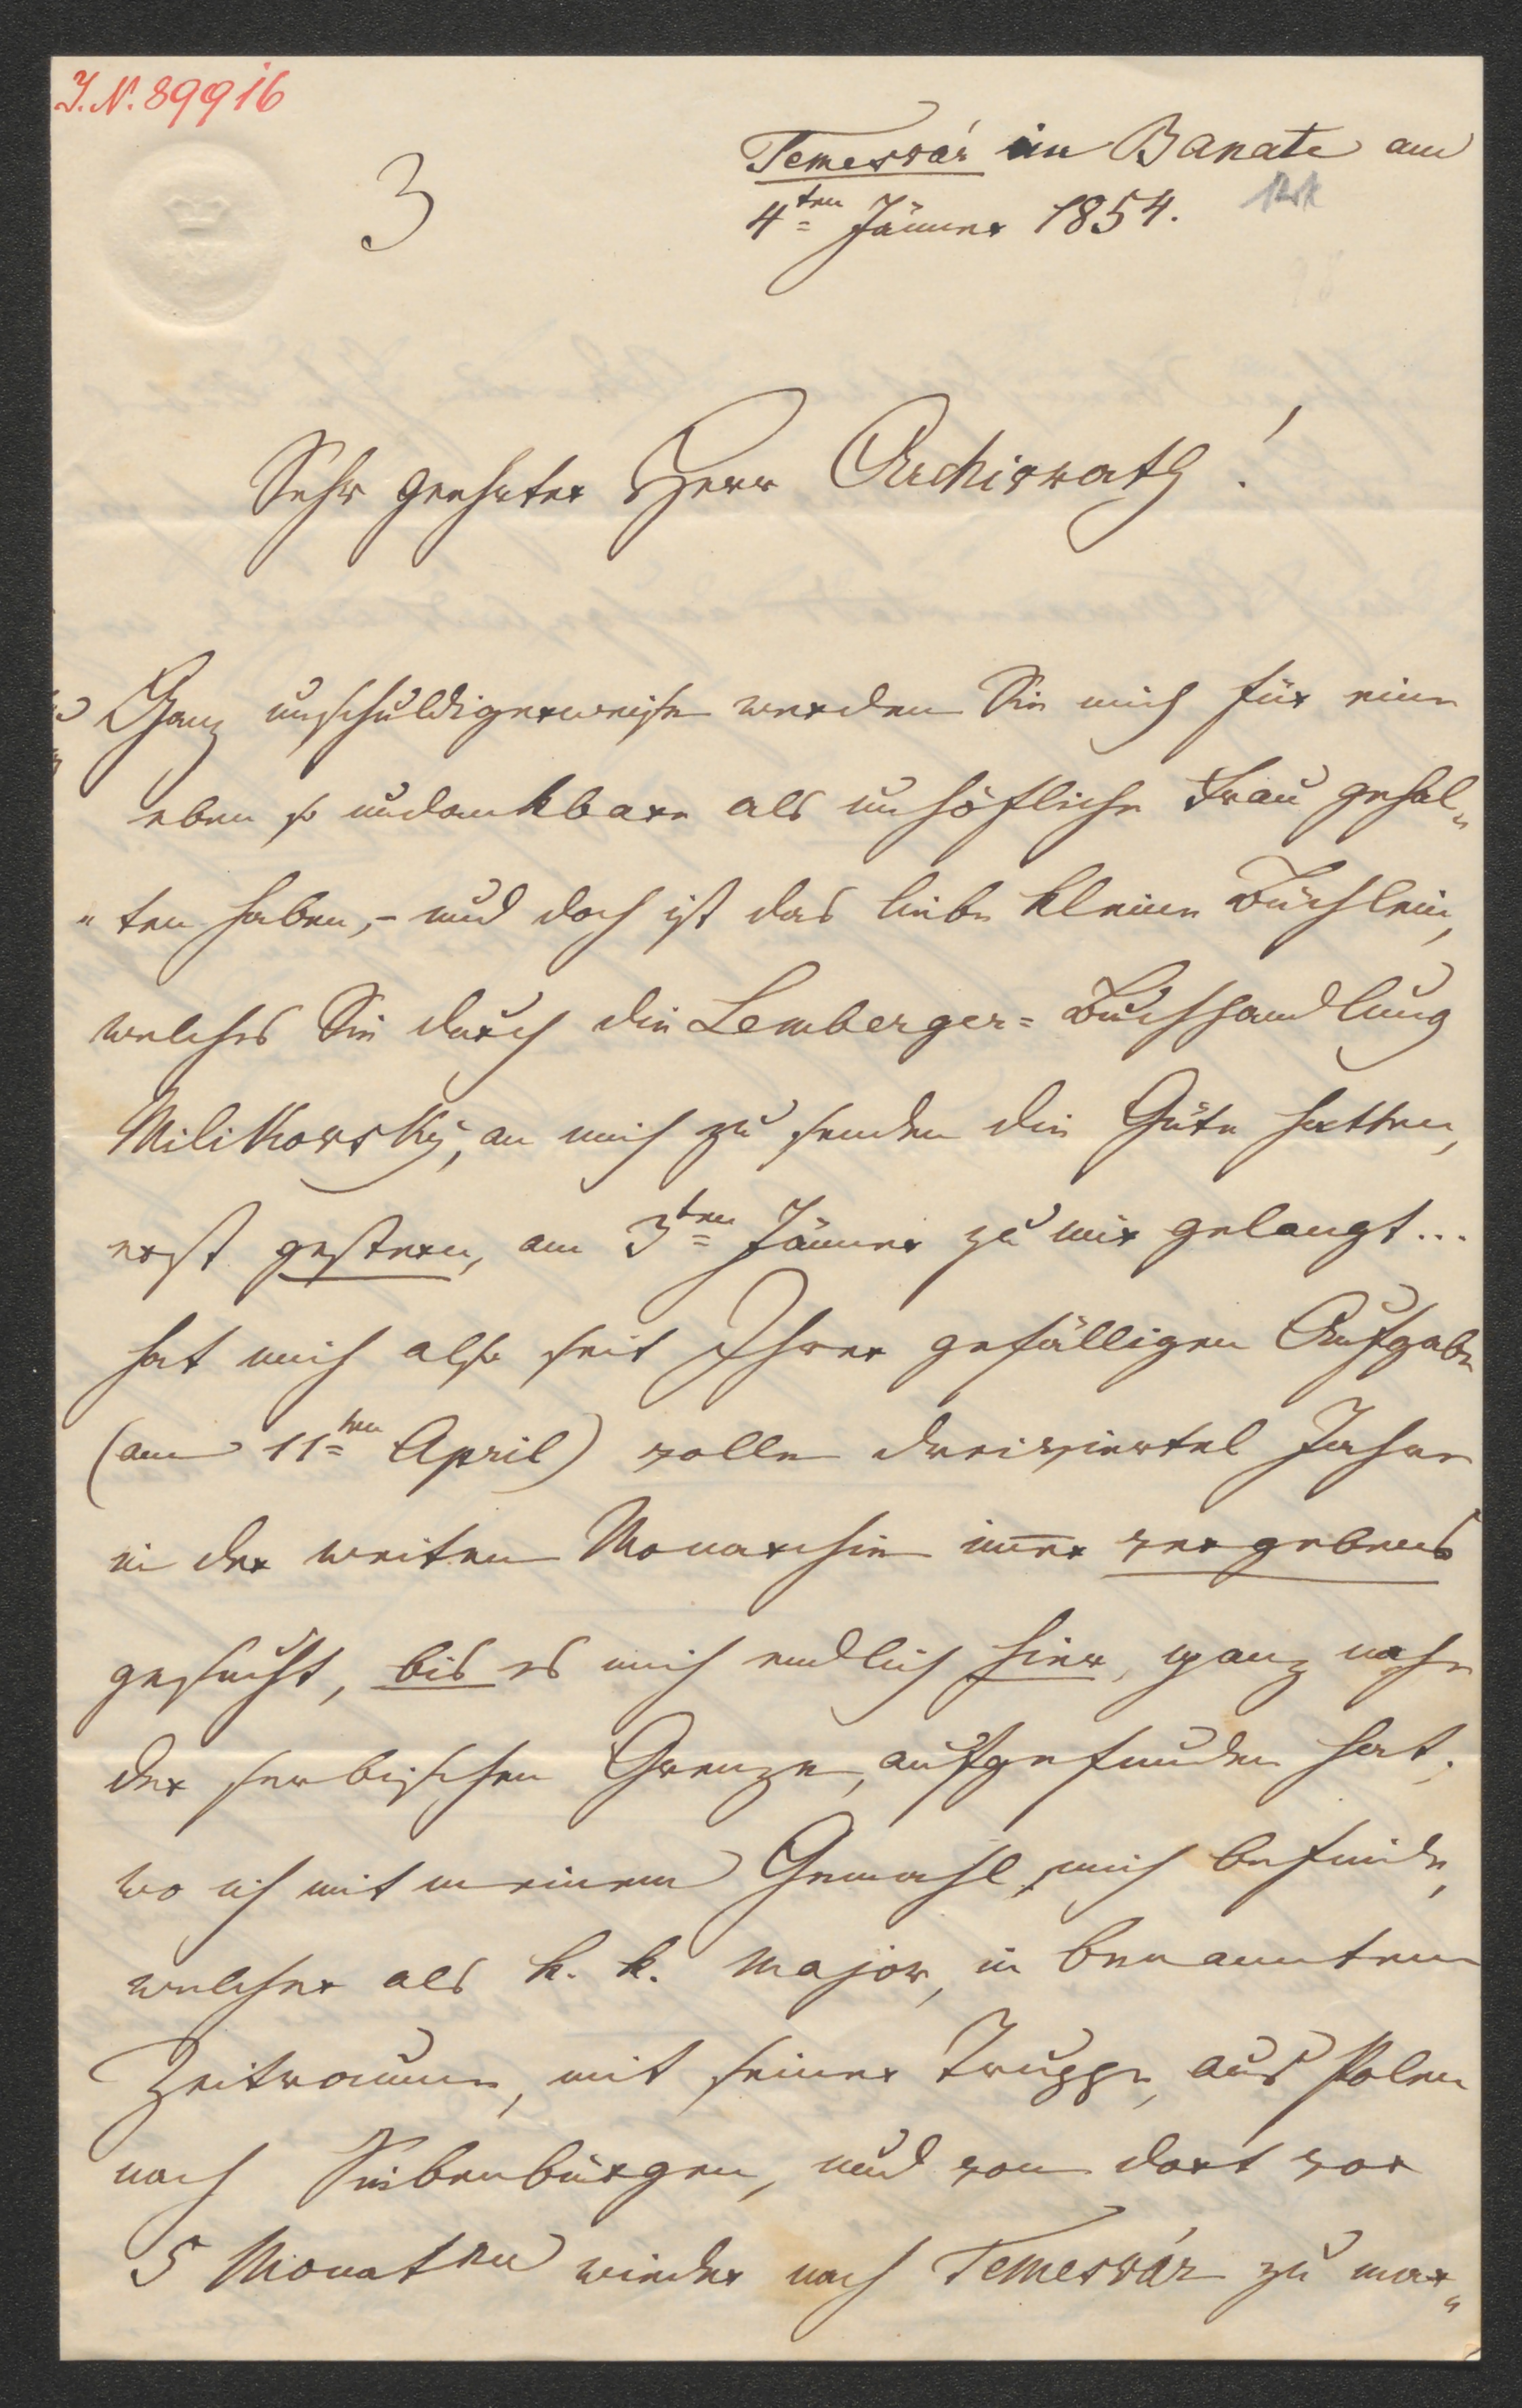 I.N. 89916
3
Temesvár im Banate am
4ten Jänner 1854.
Sehr geehrter Herr Archivrath!
Ganz unschuldigerweise werden Sie mich für eine
eben so undankbare als unhöfliche Frau gehal„
„ten haben, – und doch ist das liebe kleine Büchlein,
welches Sie durch die Lemberger= Buchhandlung
Milikovský, an mich zu senden die Güte hatten,
erst gestern, am 3ten Jänner zu mir gelangt...
hat mich also seit Ihrer gefälligen Aufgabe
(am 11ten April) volle dreiviertel Jahre
in der weiten Monarchie im̅er vergebens
gesucht, bis es mich endlich hier, ganz nahe
der serbischen Grenze, aufgefunden hat,
wo ich mit meinem Gemahl mich befinde,
welcher als k. k. Major, in benanntem
Zeitraume, mit seiner Truppe, aus Polen
nach Siebenbürgen, und von dort vor
5 Monaten wieder nach Temesvár zu mar„